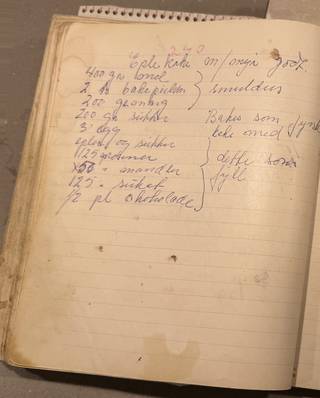 240
Eple Kake m/mye godt
400 gr mel
2 ts bakepulver } smuldres
200 gr
200 gr sukker Bakes som fyrste
3 egg kake med
epler og sukker
125 rosiner } dette som
150 " mandler fyll
125 " sukat
1/2 pl shokolade